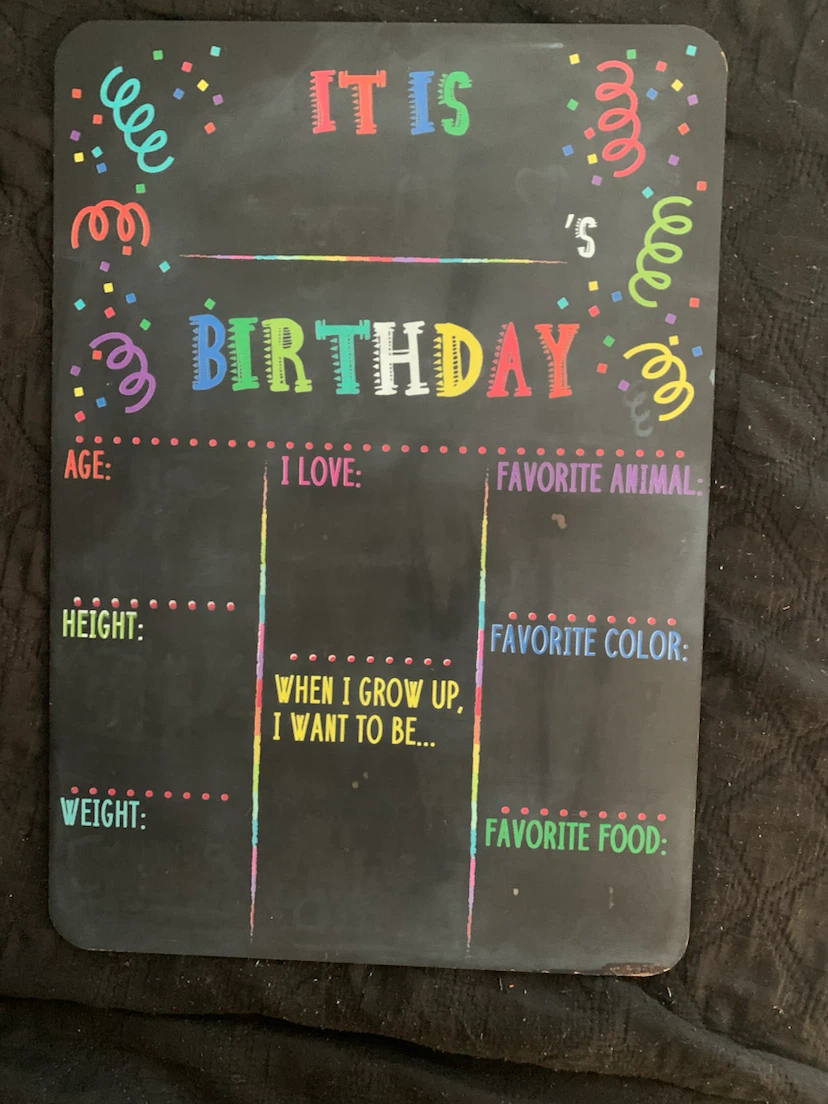 IT IS
'S
BIRTHDAY
AGE:
HEIGHT:
WEIGHT:
I LOVE:
WHEN I GROW UP,
I WANT TO BE...
FAVORITE ANIMAL:
FAVORITE COLOR:
FAVORITE FOOD: